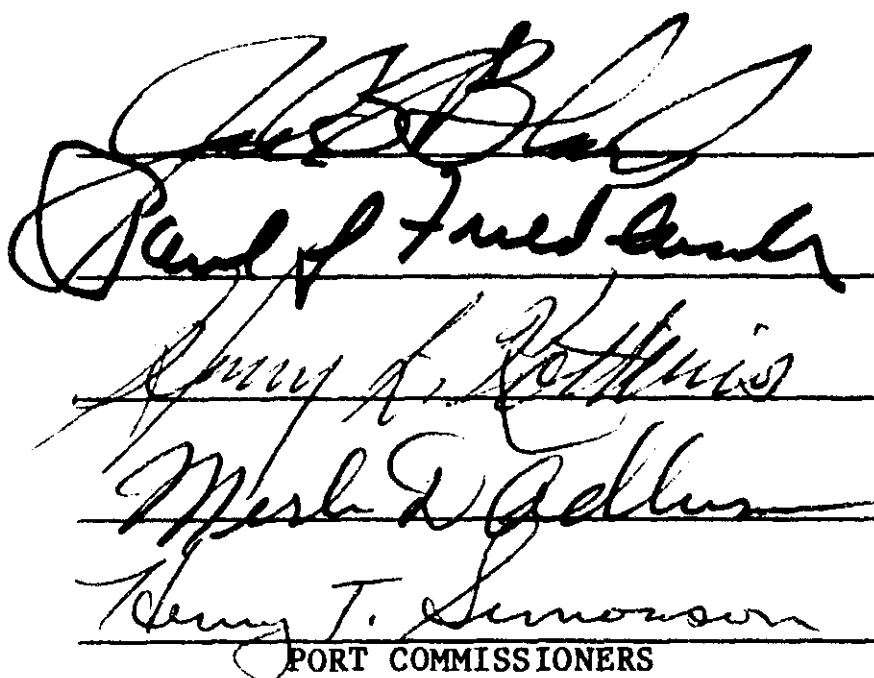 Jack S Block
Paul S Friedlander
Henry L. Kotkins
Merle D Adlum
Henry T. Simonson
PORT COMMISSIONERS